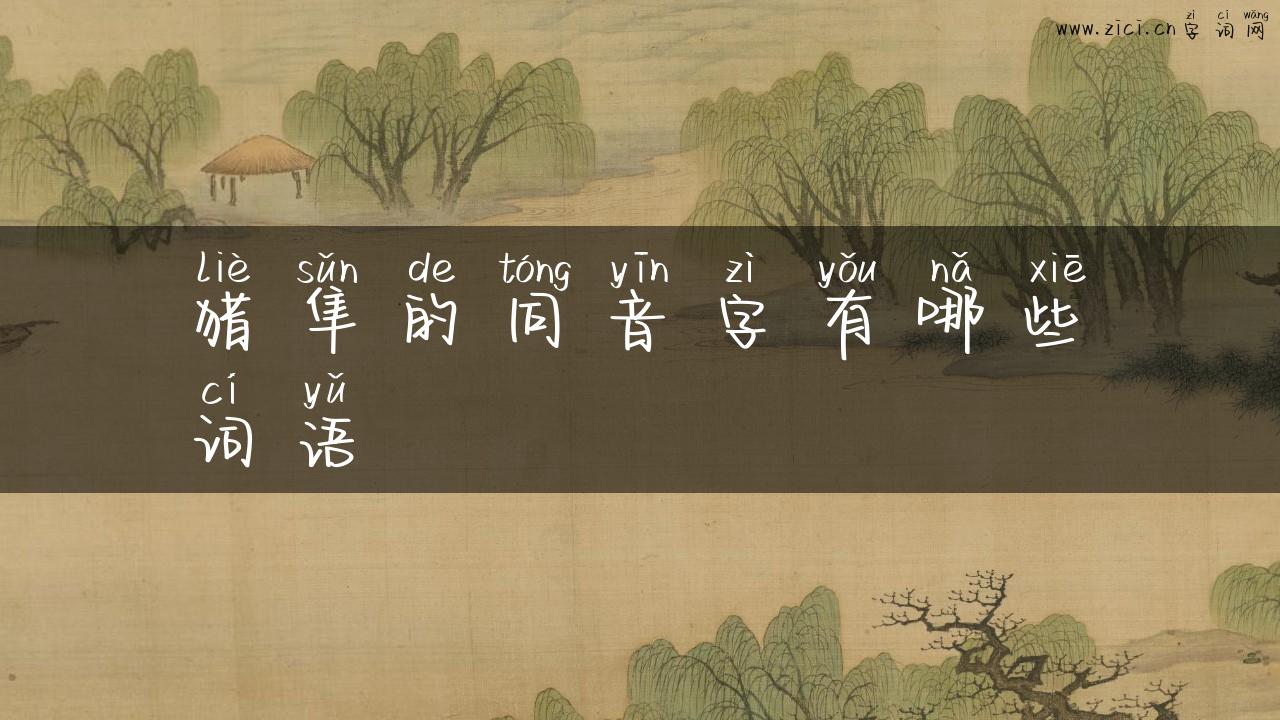 zì cí wǎng
www.zici.cn 字 词 网
liè sǔn de tóng yīn zì yǒu nǎ xiē
猎 隼 的 同 音 字 有 哪 些
cí yǔ
词 语